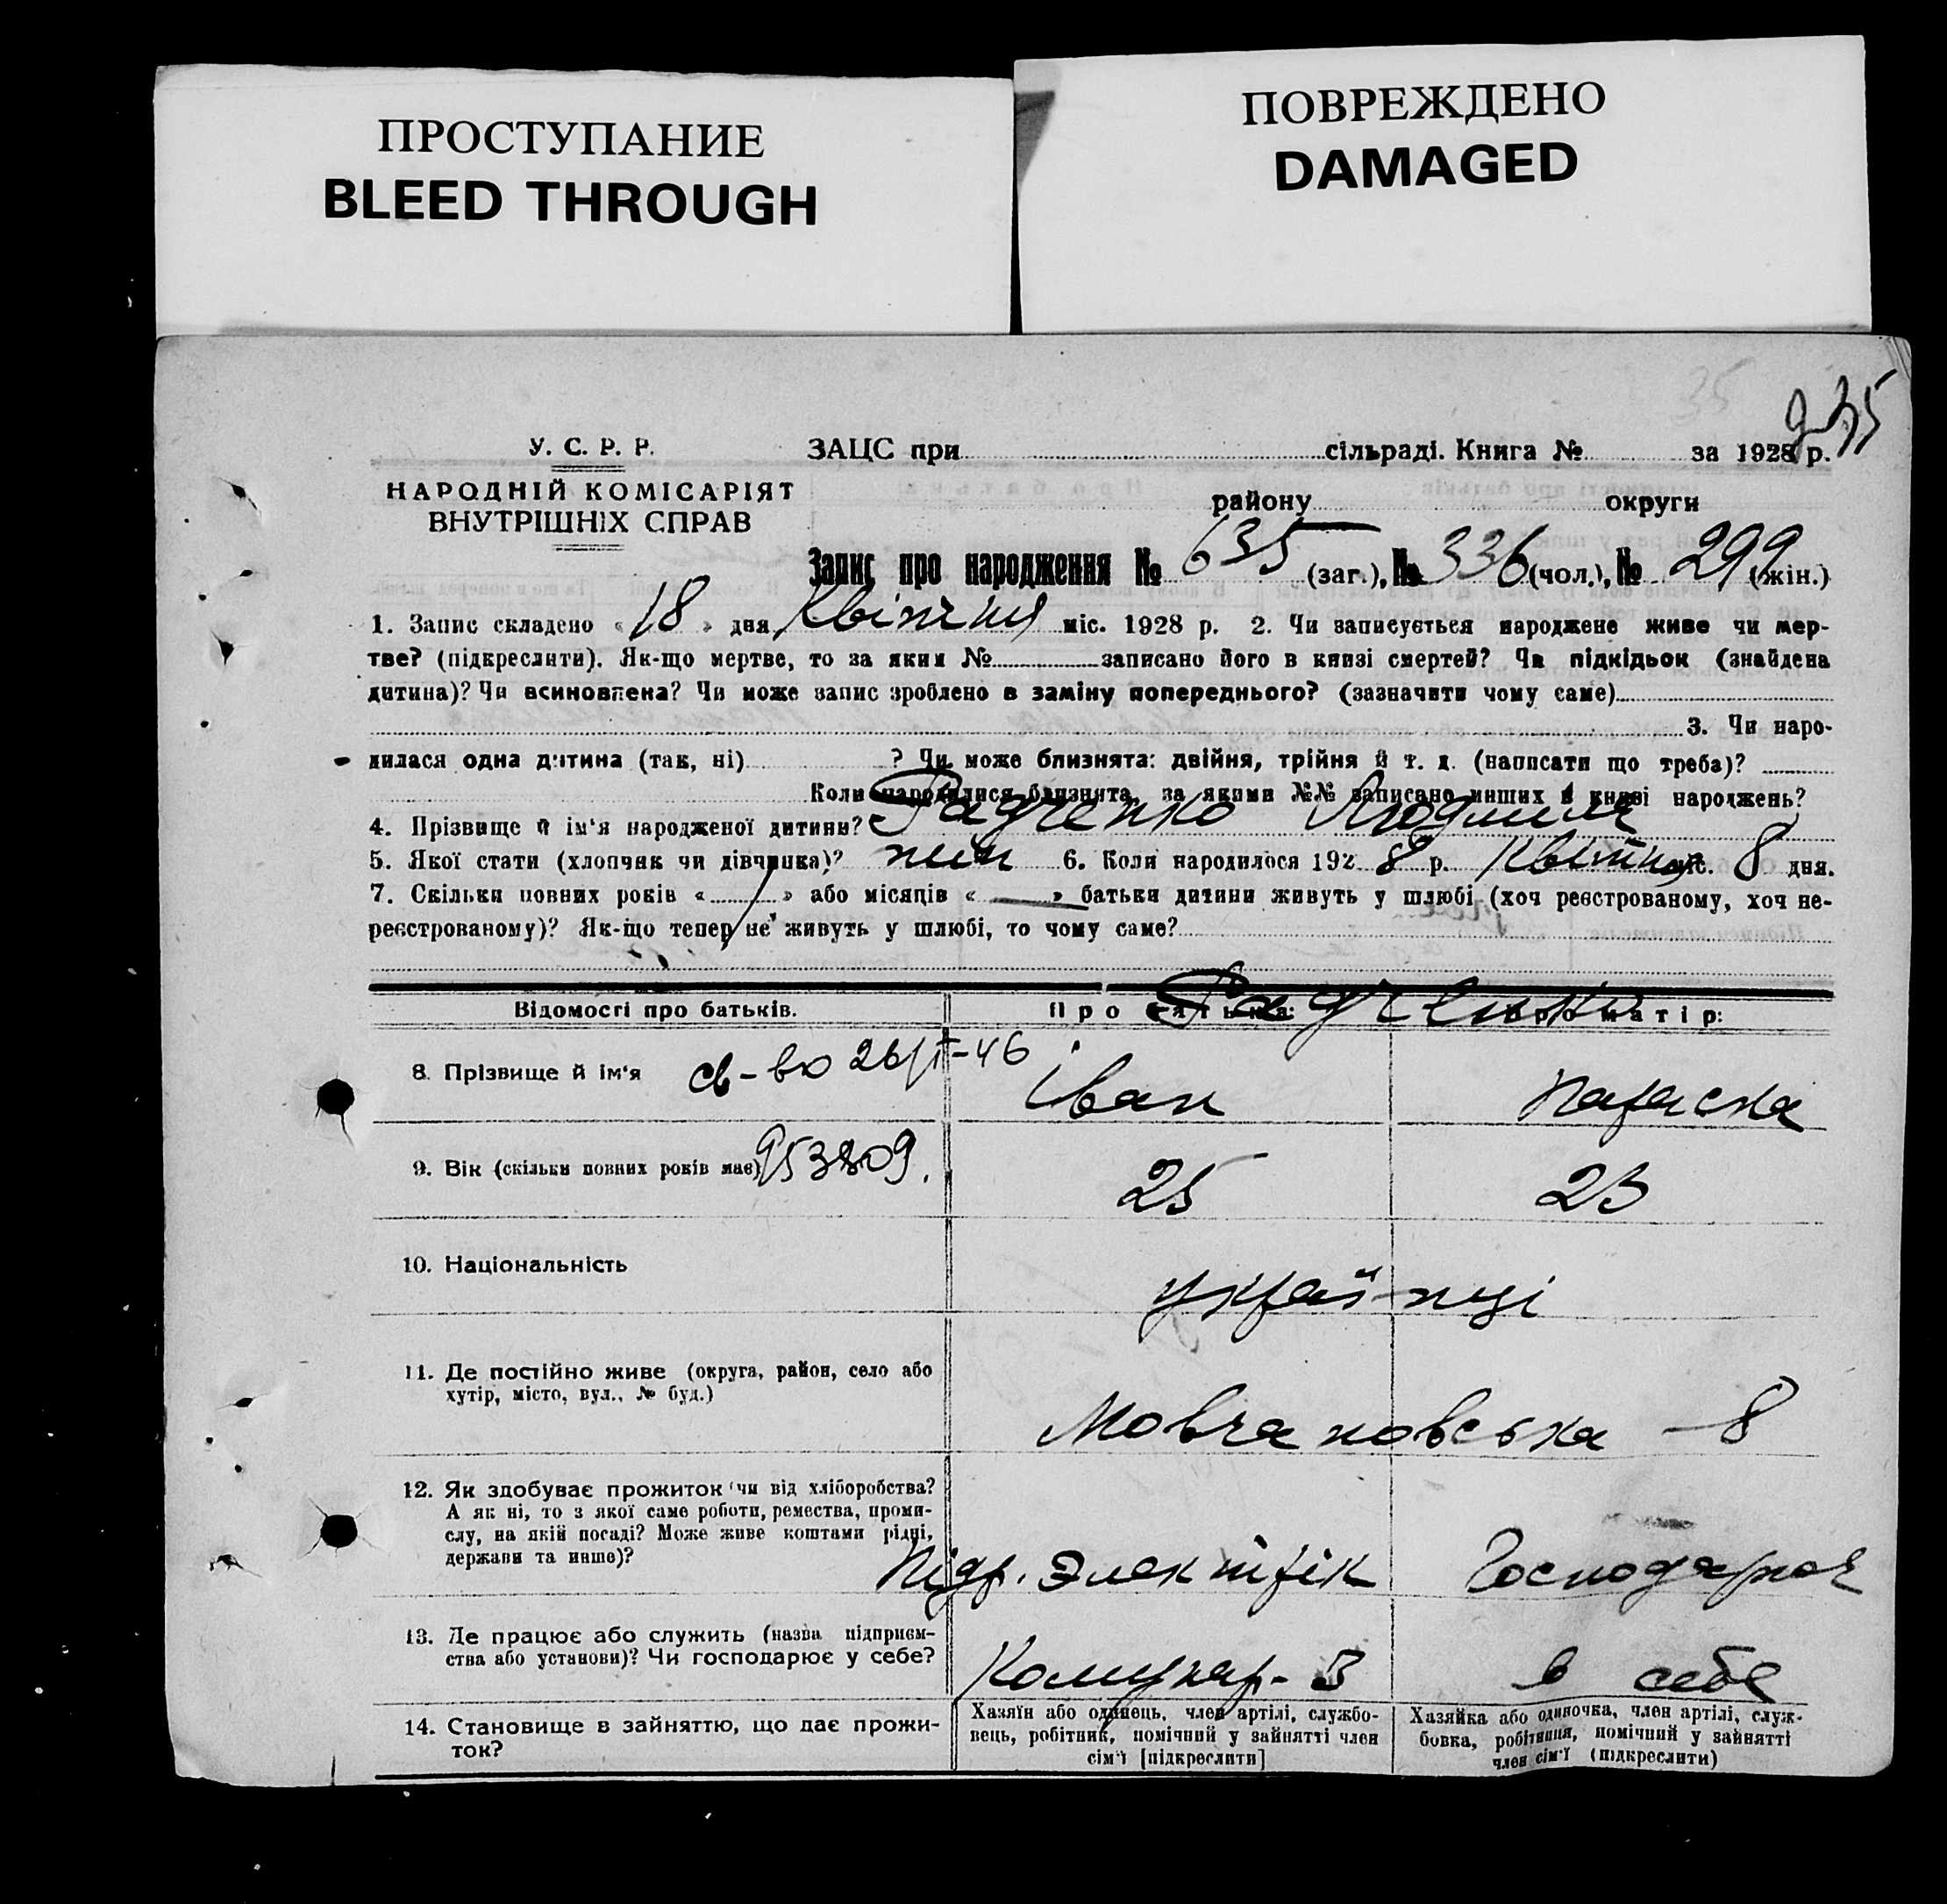 ПРОСТУПАНИЕ
BLEED THROUGH
ПОВРЕЖДЕНО
DAMAGED
35
У. С. Р. Р.
ЗАЦС при сільраді. Книга № за 1928 р.
НАРОДНІЙ КОМІСАРІЯТ
ВНУТРІШНІХ СПРАВ
району округи
Запис про народження № 635 (заг.), № 336 (чол.), № 299 (жін.)
1. Запис складено « 18 » дня Квітня міс. 1928 р. 2. Чи записується народжене живе чи мер-
тве? (підкреслити). Як-що мертве, то за яким № записано його в книзі смертей? Чи підкідьок (знайдена
дитина)? Чи всиновлена? Чи може запис зроблено в заміну попереднього? (зазначити чому саме)
3. Чи наро-
дилася одна дитина (так, ні) ? Чи може близнята: двійня, трійня й т. д. (написати що треба)?
Коли народилися близнята, за якими №№ записано инших в книзі народжень?
4. Прізвище й ім'я народженої дитини? Радченко Людмила
5. Якої стати (хлопчик чи дівчинка)? жін 6. Коли народилося 192 8 р. Квітня міс. 8 дня.
7. Скільки повних років « » або місяців « » батьки дитини живуть у шлюбі (хоч реєстрованому, хоч не-
реєстрованому)? Як-що тепер не живуть у шлюбі, то чому саме?
Відомості про батьків. Про батька: Про матір:
Радченки
8. Прізвище й ім'я св-во Іван Параска
9. Вік (скільки повних років має) 953809. 25 23
10. Національність українці
11. Де постійно живе (округа, район, село або
хутір, місто, вул., № буд.)
Мовчановська - 8
12. Як здобуває прожиток чи від хліборобства?
А як ні, то з якої саме роботи, ремества, проми-
слу, на якій посаді? Може живе коштами рідні,
держави та инше)?
Підр. Электрік Господарює
13. Де працює або служить (назва підприєм-
ства або установи)? Чи господарює у себе?
Комунар-З в себе
14. Становище в зайняттю, що дає прожи-
ток?
Хазяїн або одинець, член артілі, службо-
вець, робітник, помічний у зайнятті член
сім'ї [підкреслити]
Хазяйка або одиночка, член артілі, служ-
бовка, робітниця, помічний у зайнятті
член сім'ї (підкреслити)